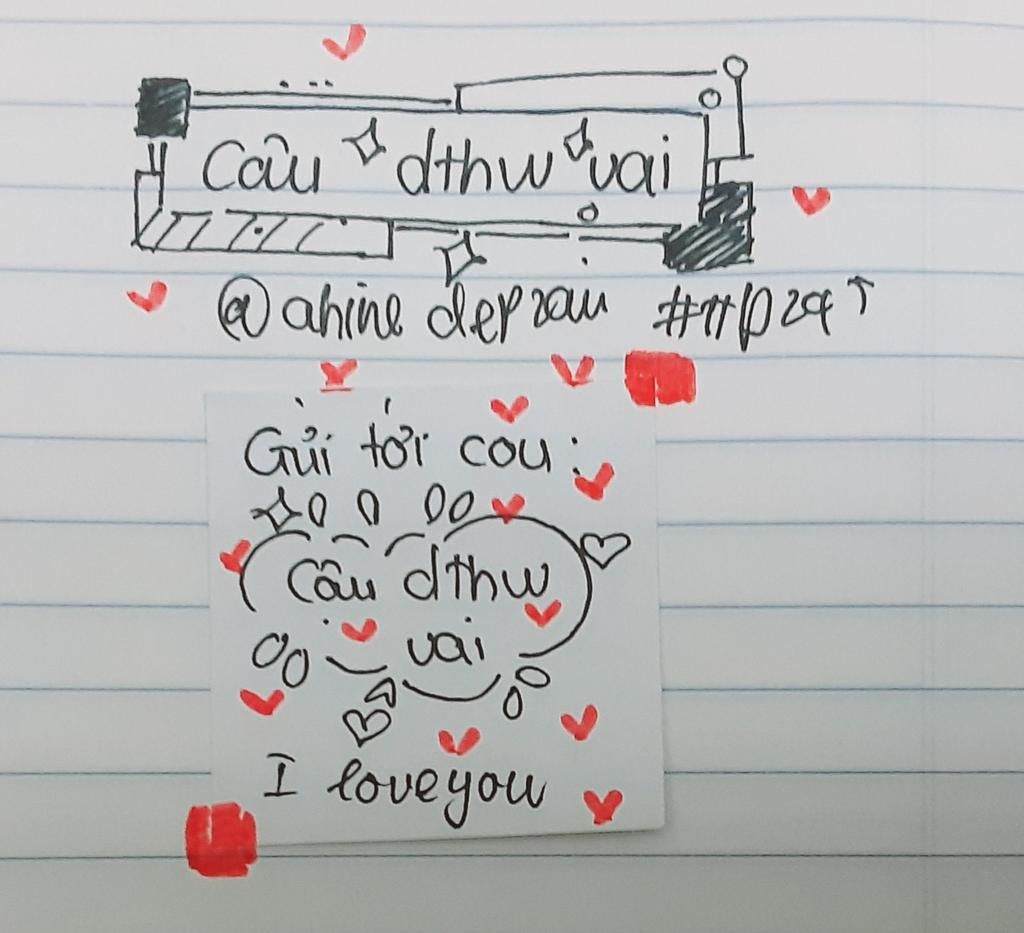 Câu dthw vai
@ahine depzau ##p24↑
Gửi tới cou:
Câu dthw
vai
I loveyou